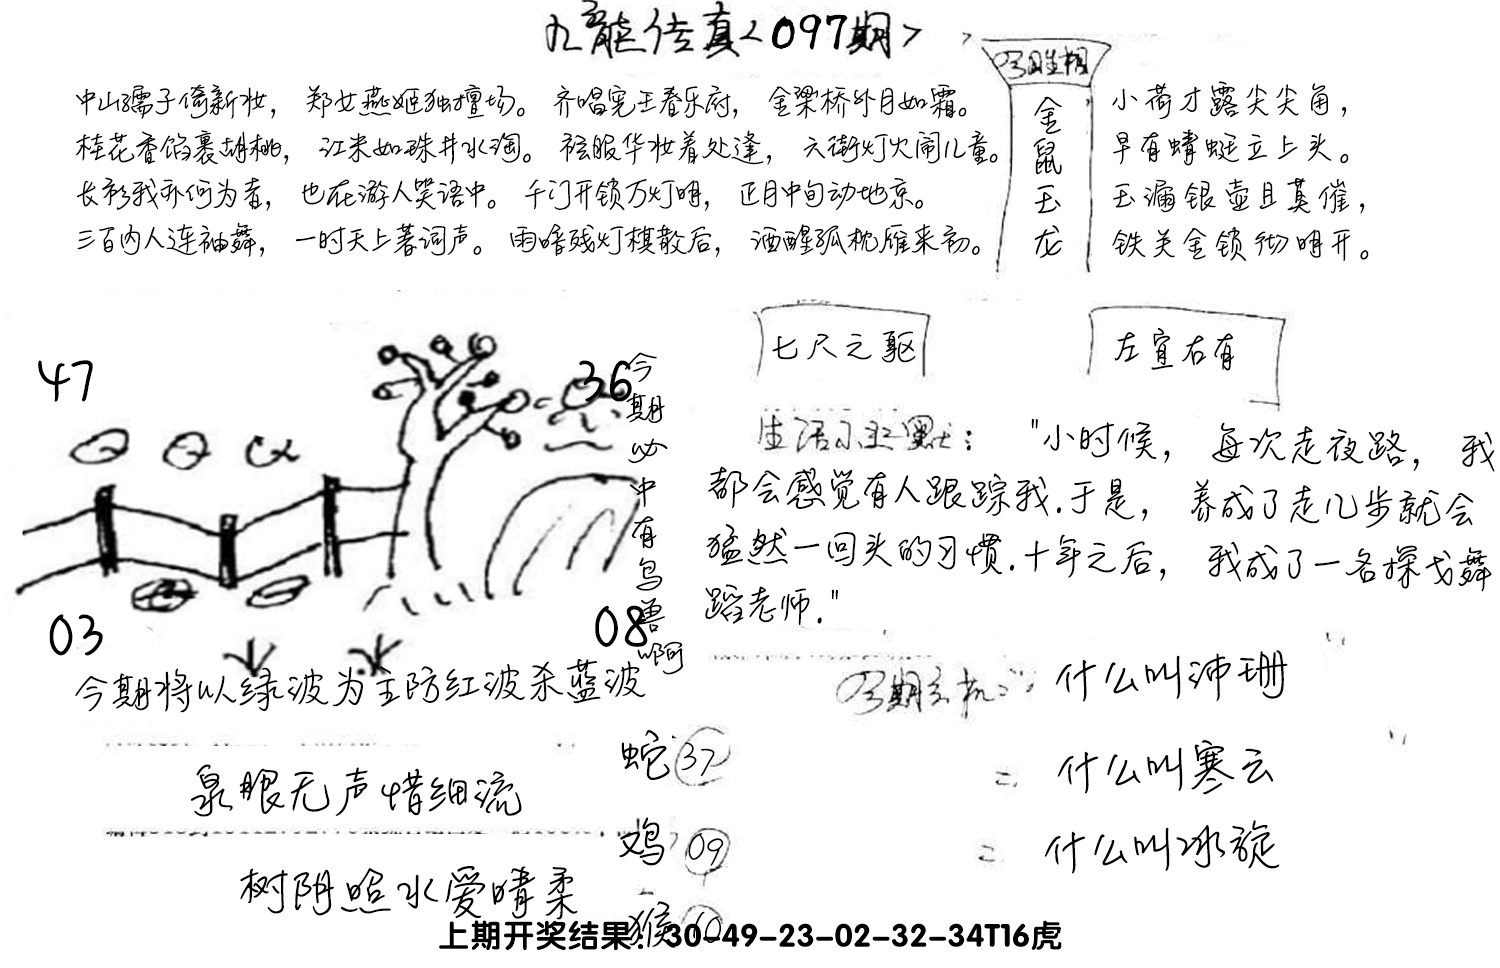 九龙传真<097期>
中山孺子倚新妆，郑女燕姬独擅场。齐唱宪王春乐府，金梁桥外月如霜。
桂花香馅裹胡桃，江米如珠井水淘。袨服华妆着处逢，六街灯火闹儿童。
长衫我亦何为者，也在游人笑语中。千门开锁万灯明，正月中旬动地京。
三百内人连袖舞，一时天上著词声。雨暗残灯棋散后，酒醒孤枕雁来初。
今期生相
金鼠玉龙
小荷才露尖尖角，
早有蜻蜓立上头。
玉漏银壶且莫催，
铁关金锁彻明开。
47
36
03
08
今期必中有鸟兽啊
今期将以绿波为主防红波杀蓝波
泉眼无声惜细流
树阴照水爱晴柔
七尺之驱
左宜右有
生活小幽默："小时候，每次走夜路，我
都会感觉有人跟踪我.于是，养成了走几步就会
猛然一回头的习惯.十年之后，我成了一名探戈舞
蹈老师."
今期玄机：什么叫沛珊
什么叫寒云
什么叫冰旋
蛇 37
鸡 09
猴 10
上期开奖结果：30-49-23-02-32-34T16虎